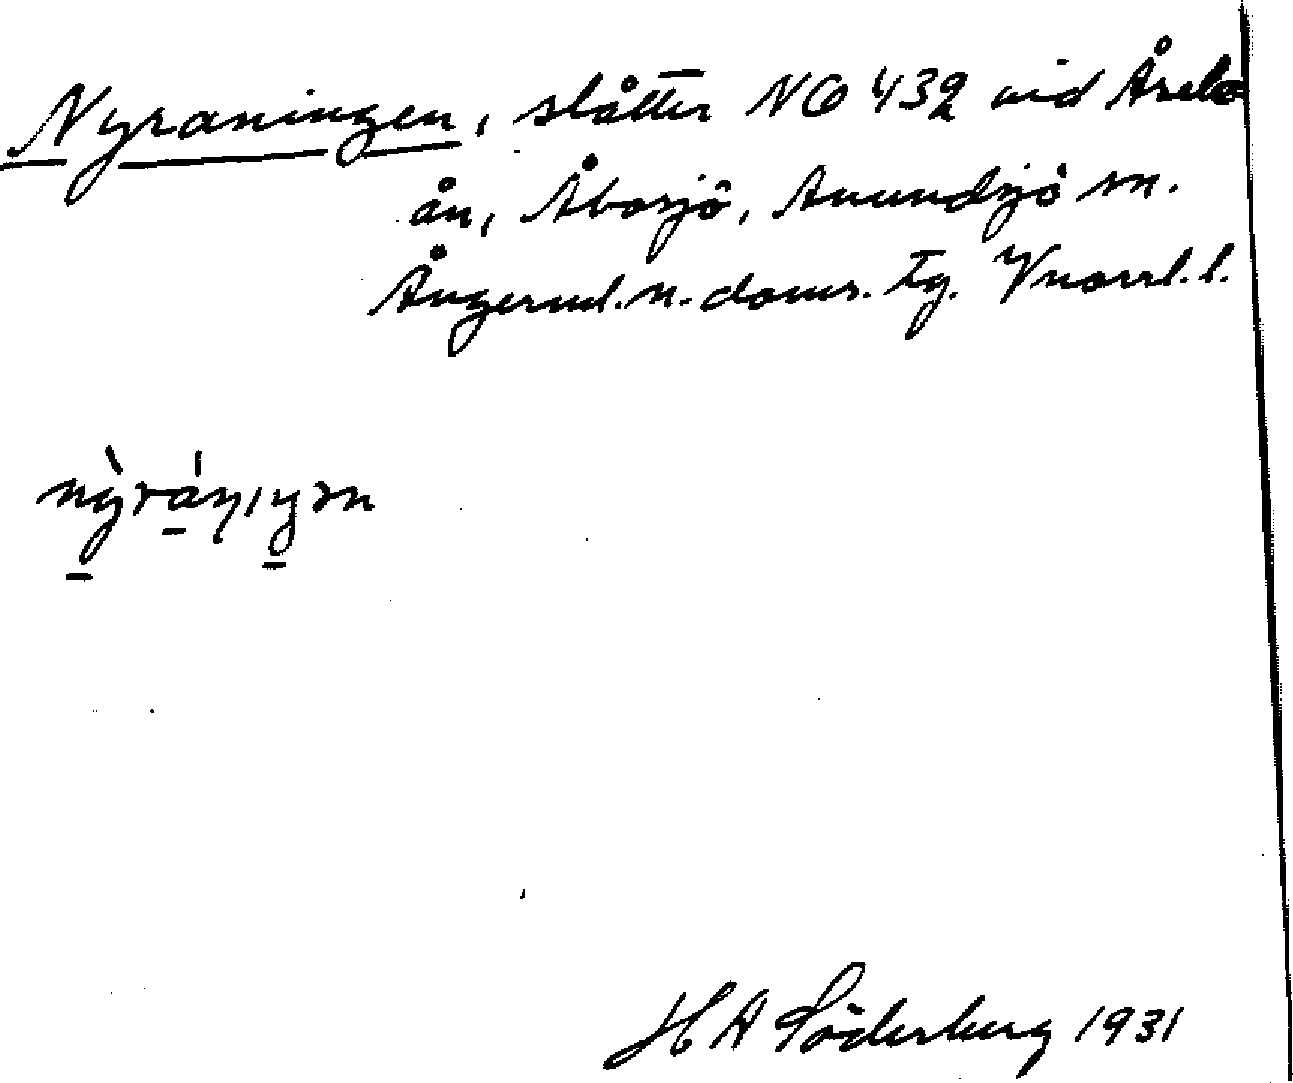 Nyraningen, slåtter NO 432 vid Åsele
ån, Åbosjö, Anundsjö sn.
Ångerml. n. doms. tg. Vnorrl. l.
H A Söderberg 1931